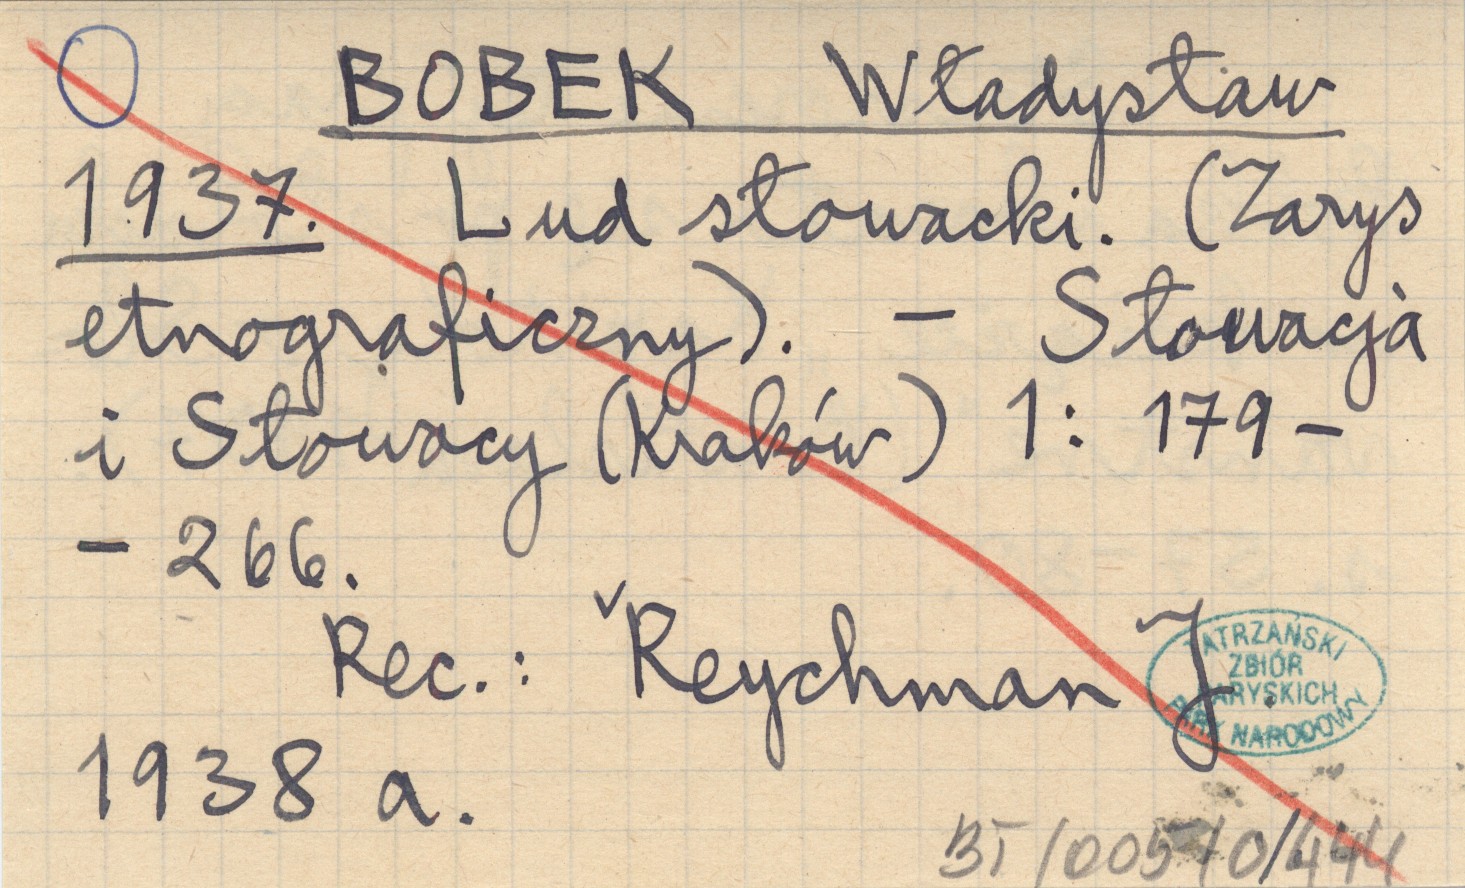 BOBEK Władysław
1937. Lud słowacki. (Zarys
etnograficzny). – Słowacja
i Słowacy (Kraków) 1: 179 –
– 266.
Rec.: Reychman J.
1938 a.
TATRZAŃSKI
ZBIÓR
PARYSKICH
PARK NARODOWY
BT/005/0/444